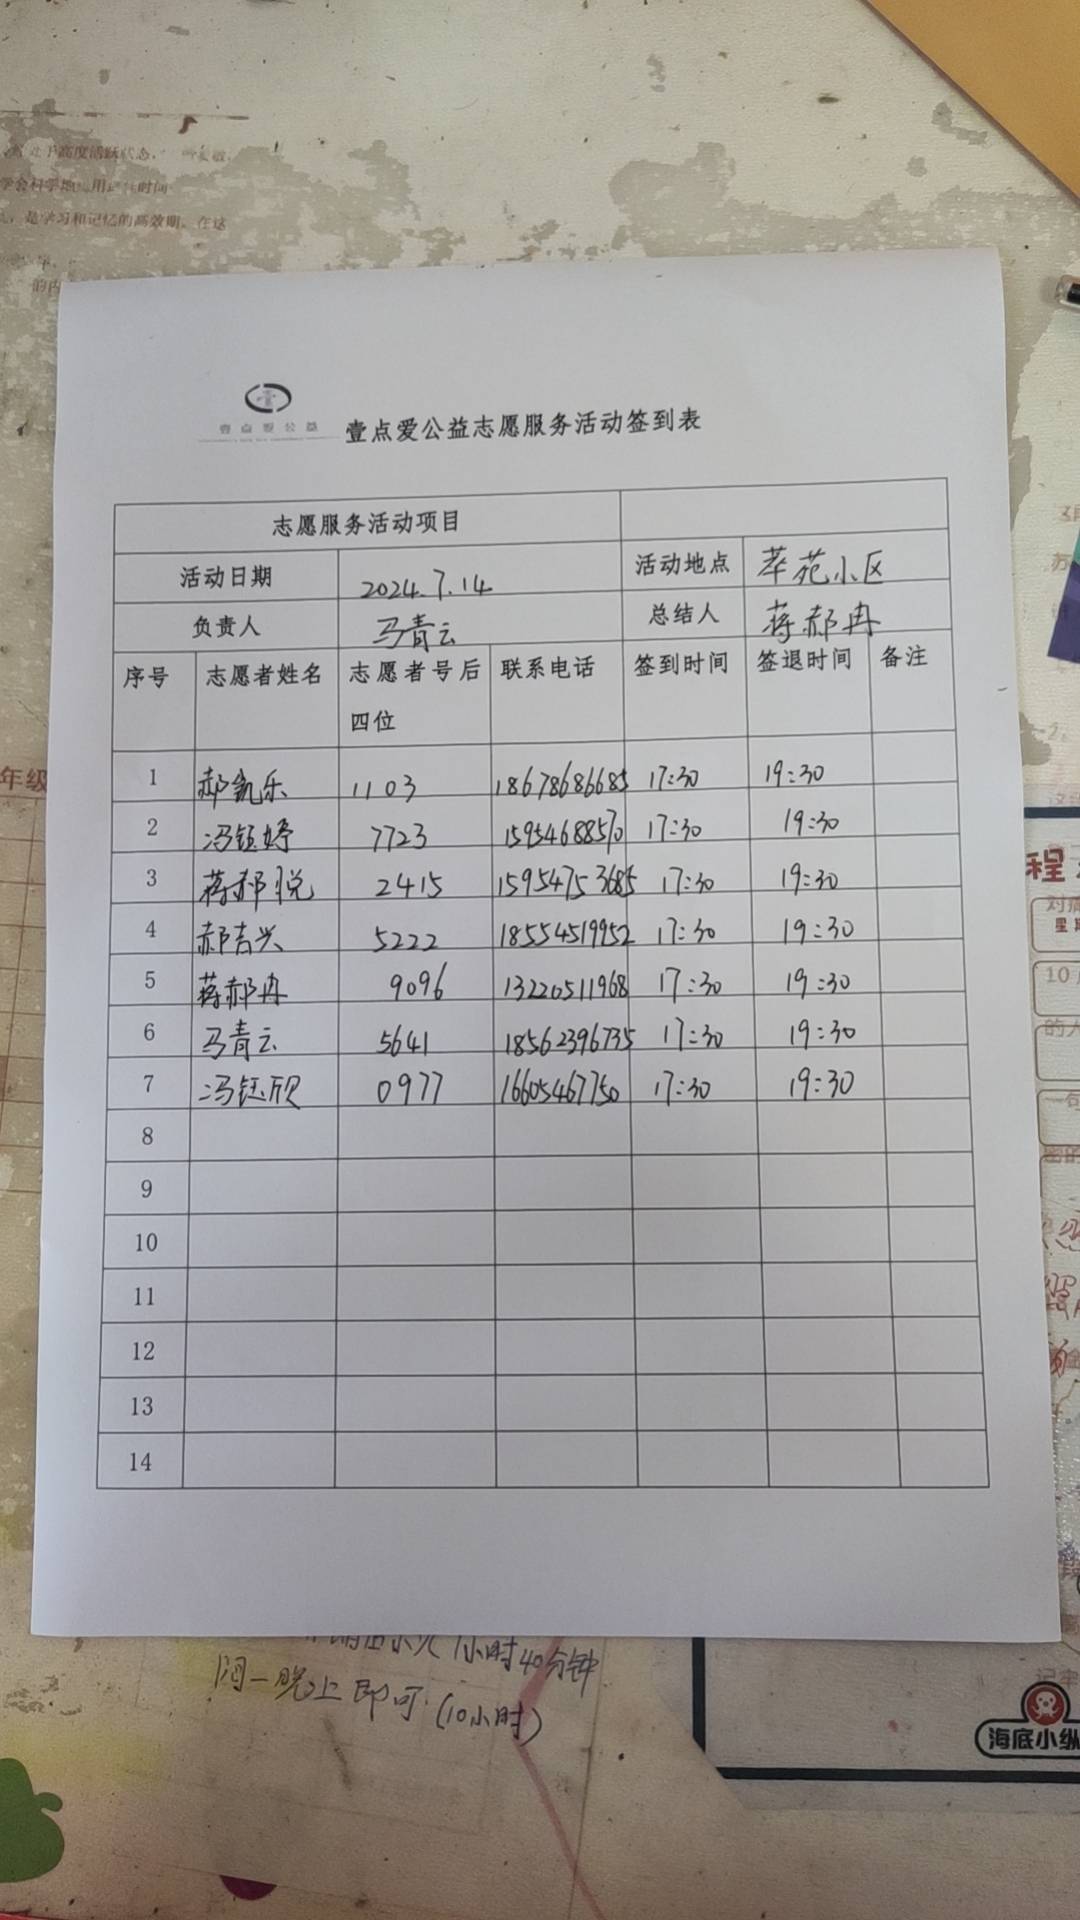 是学习和记忆的高效期。在这
壹点爱公益
壹点爱公益志愿服务活动签到表
志愿服务活动项目
活动日期 2024.7.14 活动地点 萃花小区
负责人 马青云 总结人 蒋郝冉
序号 志愿者姓名 志愿者号后四位 联系电话 签到时间 签退时间 备注
1 郝凯乐 1103 18678686685 17:30 19:30
2 冯钰婷 7723 15954688570 17:30 19:30
3 蒋郝悦 2415 15954753685 17:30 19:30
4 郝吉兴 5222 18554519952 17:30 19:30
5 蒋郝冉 9096 13220511968 17:30 19:30
6 马青云 5641 18562396735 17:30 19:30
7 冯钰欣 0977 16605467750 17:30 19:30
8
9
10
11
12
13
14
年级
程
小时40分钟
同一晚上即可(10小时)
海底小纵